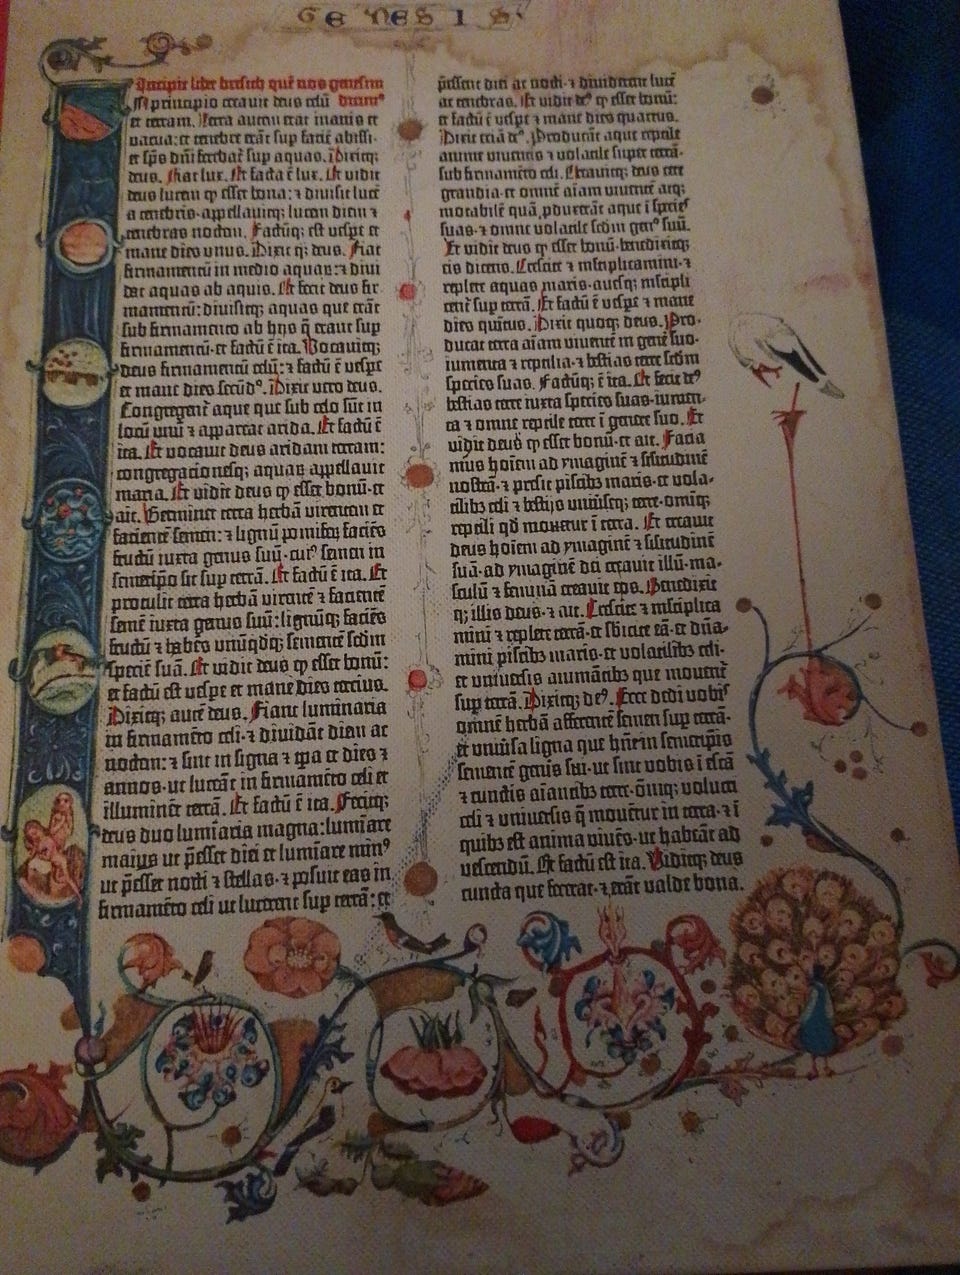 GENESIS
Incipit liber bresith quē nos genesim
In principio creavit deus celū dicimꝰ
et terram. Terra autem erat inanis et
vacua: et tenebre erāt sup faciē abissi·
et sp̄s dn̄i ferebat̄ sup aquas. Dixitq;
deus. Fiat lux. Et facta ē lux. Et vidit
deus lucem ꝙ esset bona: ⁊ divisit lucē
a tenebris·appellavitq; lucem diem ⁊
tenebras noctem. Factūq; est vespe et
mane dies unus. Dixit q; deus. Fiat
firmamentū in medio aquaꝝ: ⁊ divi
dat aquas ab aquis. Et fecit deus fir-
mamentū: divisitq; aquas que erāt
sub firmamento ab hijs q̄ erant sup
firmamentū·et factū ē ita. Vocavitq;
deus firmamentū celū: ⁊ factū ē vespe
et mane dies secūdꝰ. Dixit vero deus.
Congregent̄ aque que sub celo sūt in
locū unū ⁊ appareat arida. Et factū ē
ita. Et vocavit deus aridam terram:
congregacionesq; aquaꝝ appellavit
maria. Et vidit deus ꝙ esset bonū·et
ait. Germinet terra herbā virentem et
facientē semen: ⁊ lignū pomiferū faciēs
fructū iuxta genus suū·cuiꝰ semen in
semetipo sit sup terrā. Et factū ē ita. Et
protulit terra herbā virentē ⁊ facientē
semē iuxta genus suū: lignūq; faciēs
fructū ⁊ habēs unūqdq; sementē scdm
speciē suā. Et vidit deus ꝙ esset bonū:
et factū est vespe et mane dies tercius.
Dixitq; autē deus. Fiant luminaria
in firmamēto celi·⁊ dividāt diem ac
noctem: ⁊ sint in signa ⁊ tpa et dies ⁊
annos·ut luceāt in firmamēto celi et
illuminēt terrā. Et factū ē ita. Fecitq;
deus duo lumiaria magna: lumiare
maius ut p̄esset diei et lumiare minꝰ
ut p̄esset nocti ⁊ stellas·⁊ posuit eas in
firmamēto celi ut lucerent sup terrā: et
p̄essent diei ac nocti·⁊ dividerent lucē
ac tenebras. Et vidit dꝰ ꝙ esset bonū:
et factū ē vespe ⁊ mane dies quartus.
Dixit etiā dꝰ. Producāt aque reptile
anime viventis ⁊ volatile super terrā·
sub firmamēto celi. Creavitq; deus cete
grandia·et omnē aīam viventē atq;
motabilē quā pduxerāt aque ī species
suas·⁊ omne volatile scdm genꝰ suū.
Et vidit deus ꝙ esset bonū·benedixitq;
eis dicens. Crescite ⁊ mltiplicamini·⁊
replete aquas maris·avesq; mltipli
cent̄ sup terrā. Et factū ē vespe ⁊ mane
dies quītus. Dixit quoq; deus. Pro-
ducat terra aīam viventē in genē suo·
iumenta ⁊ reptilia·⁊ bestias terre scdm
species suas. Factūq; ē ita. Et fecit dꝰ
bestias terre iuxta species suas·iumen-
ta ⁊ omne reptile terre ī genere suo. Et
vidit deus ꝙ esset bonū·et ait. Facia
mus hoīem ad ymaginē ⁊ sīlitudinē
nostrā·⁊ presit piscibꝫ maris·et vola-
tilibꝫ celi ⁊ bestijs universeq; terre·omiq;
reptili qd movetur ī terra. Et creavit
deus hoīem ad ymaginē ⁊ sīlitudinē
suā·ad ymaginē dei creavit illū·ma-
sculū ⁊ feminā creavit eos. Benedixit
q; illis deus·⁊ ait. Crescite ⁊ mltiplica
mini ⁊ replete terrā·et sbicite eā·et dn̄a-
mini piscibꝫ maris·et volatilibꝫ celi·
et universis animātibꝫ que moventr
sup terrā. Dixitq; dꝰ. Ecce dedi vobis
omnē herbā afferentē semen sup terrā·
et universa ligna que hn̄t in semetipsis
sementē genis sui·ut sint vobis ī escā
⁊ cunctis aīantibꝫ terre·omiq; volucri
celi ⁊ universis q̄ moventur in terra·⁊ ī
quibꝫ est anima vivēs·ut habeāt ad
vescendū. Et factū est ita. Viditq; deus
cuncta que fecerat·⁊ erāt valde bona.